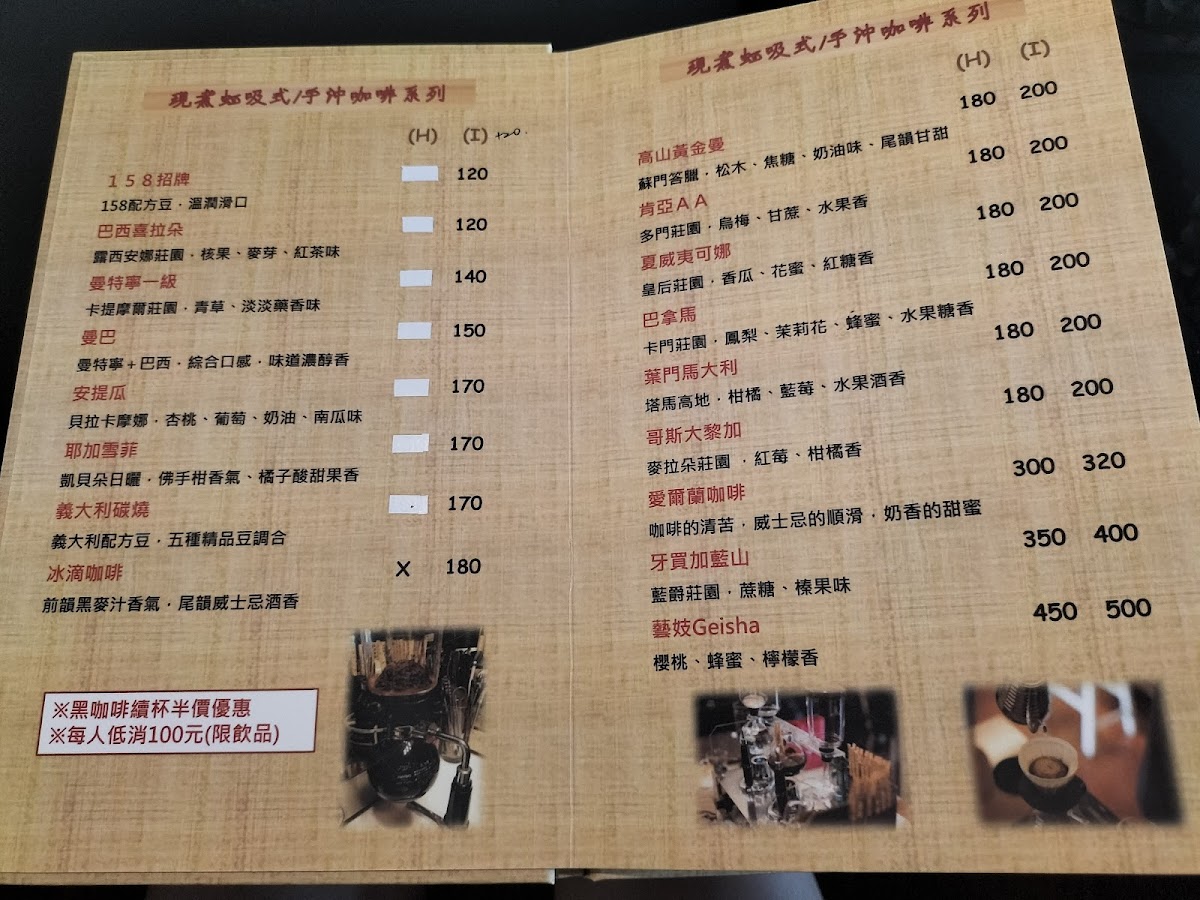 現煮虹吸式/手沖咖啡系列
(H) (I) +20.
158招牌 120
158配方豆．溫潤滑口
巴西喜拉朵 120
露西安娜莊園．核果、麥芽、紅茶味
曼特寧一級 140
卡提摩爾莊園．青草、淡淡藥香味
曼巴 150
曼特寧+巴西．綜合口感．味道濃醇香
安提瓜 170
貝拉卡摩娜．杏桃、葡萄、奶油、南瓜味
耶加雪菲 170
凱貝朵日曬．佛手柑香氣、橘子酸甜果香
義大利碳燒 170
義大利配方豆．五種精品豆調合
冰滴咖啡 X 180
前韻黑麥汁香氣．尾韻威士忌酒香
※黑咖啡續杯半價優惠
※每人低消100元(限飲品)
現煮虹吸式/手沖咖啡系列
(H) (I)
高山黃金曼 180 200
蘇門答臘．松木、焦糖、奶油味、尾韻甘甜
肯亞AA 180 200
多門莊園．烏梅、甘蔗、水果香
夏威夷可娜 180 200
皇后莊園．香瓜、花蜜、紅糖香
巴拿馬 180 200
卡門莊園．鳳梨、茉莉花、蜂蜜、水果糖香
葉門馬大利 180 200
塔馬高地．柑橘、藍莓、水果酒香
哥斯大黎加 180 200
麥拉朵莊園．紅莓、柑橘香
愛爾蘭咖啡 300 320
咖啡的清苦．威士忌的順滑．奶香的甜蜜
牙買加藍山 350 400
藍爵莊園．蔗糖、榛果味
藝妓Geisha 450 500
櫻桃、蜂蜜、檸檬香